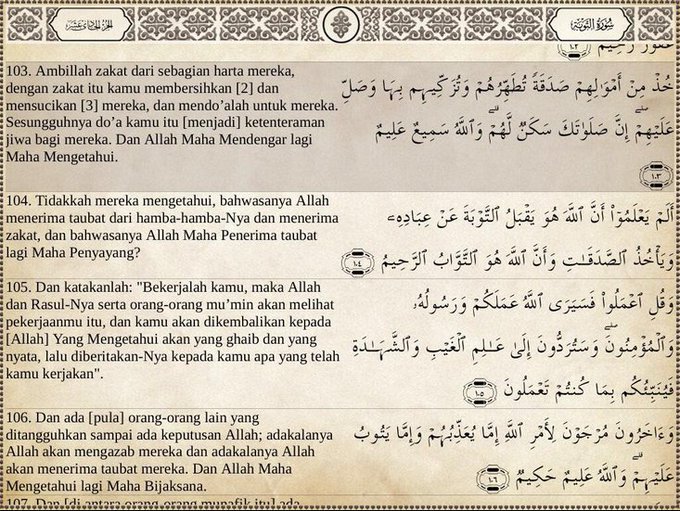 الجزء الحادي عشر
سُورَةُ التَّوْبَةِ
103. Ambillah zakat dari sebagian harta mereka,
dengan zakat itu kamu membersihkan [2] dan
mensucikan [3] mereka, dan mendo’alah untuk mereka.
Sesungguhnya do’a kamu itu [menjadi] ketenteraman
jiwa bagi mereka. Dan Allah Maha Mendengar lagi
Maha Mengetahui.
خُذْ مِنْ أَمْوَٰلِهِمْ صَدَقَةً تُطَهِّرُهُمْ وَتُزَكِّيهِم بِهَا وَصَلِّ
عَلَيْهِمْ ۖ إِنَّ صَلَوٰتَكَ سَكَنٌ لَّهُمْ ۗ وَٱللَّهُ سَمِيعٌ عَلِيمٌ
١٠٣
104. Tidakkah mereka mengetahui, bahwasanya Allah
menerima taubat dari hamba-hamba-Nya dan menerima
zakat, dan bahwasanya Allah Maha Penerima taubat
lagi Maha Penyayang?
أَلَمْ يَعْلَمُوٓا۟ أَنَّ ٱللَّهَ هُوَ يَقْبَلُ ٱلتَّوْبَةَ عَنْ عِبَادِهِۦ
وَيَأْخُذُ ٱلصَّدَقَـٰتِ وَأَنَّ ٱللَّهَ هُوَ ٱلتَّوَّابُ ٱلرَّحِيمُ ١٠٤
105. Dan katakanlah: "Bekerjalah kamu, maka Allah
dan Rasul-Nya serta orang-orang mu’min akan melihat
pekerjaanmu itu, dan kamu akan dikembalikan kepada
[Allah] Yang Mengetahui akan yang ghaib dan yang
nyata, lalu diberitakan-Nya kepada kamu apa yang telah
kamu kerjakan".
وَقُلِ ٱعْمَلُوا۟ فَسَيَرَى ٱللَّهُ عَمَلَكُمْ وَرَسُولُهُۥ
وَٱلْمُؤْمِنُونَ ۖ وَسَتُرَدُّونَ إِلَىٰ عَـٰلِمِ ٱلْغَيْبِ وَٱلشَّهَـٰدَةِ
فَيُنَبِّئُكُم بِمَا كُنتُمْ تَعْمَلُونَ ١٠٥
106. Dan ada [pula] orang-orang lain yang
ditangguhkan sampai ada keputusan Allah; adakalanya
Allah akan mengazab mereka dan adakalanya Allah
akan menerima taubat mereka. Dan Allah Maha
Mengetahui lagi Maha Bijaksana.
وَءَاخَرُونَ مُرْجَوْنَ لِأَمْرِ ٱللَّهِ إِمَّا يُعَذِّبُهُمْ وَإِمَّا يَتُوبُ
عَلَيْهِمْ ۗ وَٱللَّهُ عَلِيمٌ حَكِيمٌ ١٠٦
107. Dan [di antara orang-orang munafik itu] ada